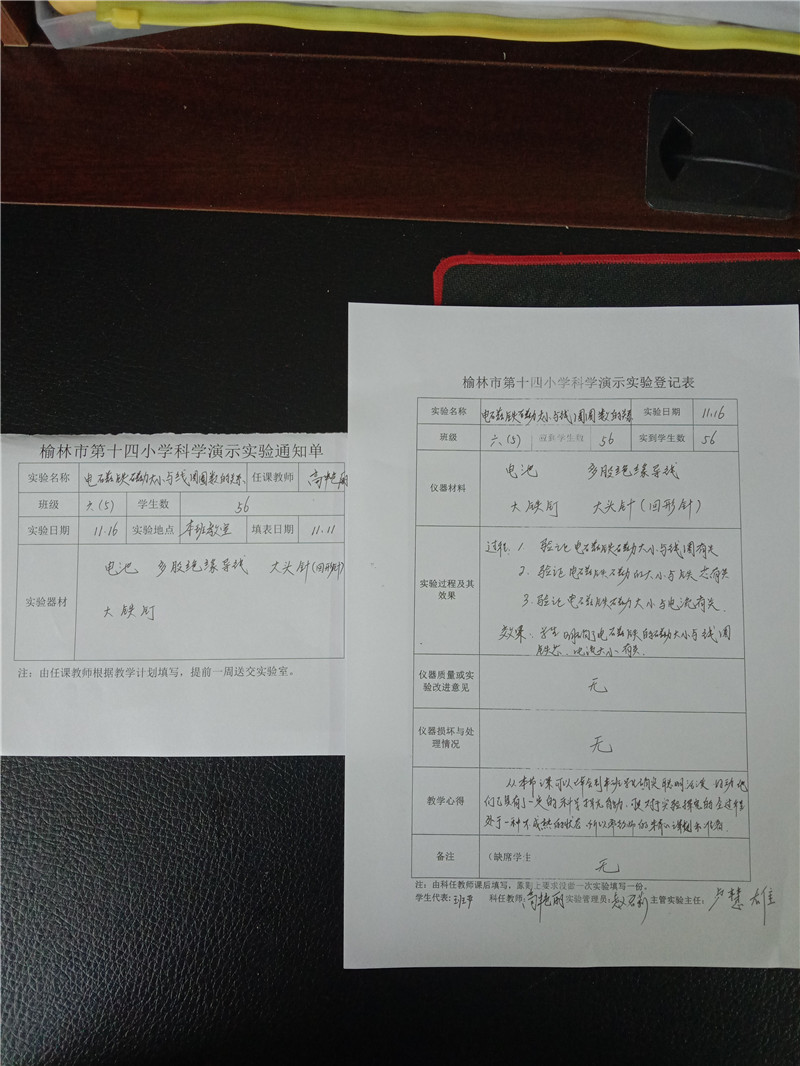 榆林市第十四小学科学演示实验通知单
实验名称 电磁铁磁力大小与线圈圈数的关系 任课教师 高艳丽
班级 六(5) 学生数 56
实验日期 11.16 实验地点 本班教室 填表日期 11.11
实验器材 电池 多股绝缘导线 大头针(回形针)
大铁钉
注：由任课教师根据教学计划填写，提前一周送交实验室。
榆林市第十四小学科学演示实验登记表
实验名称 电磁铁磁力大小与线圈圈数的关系 实验日期 11.16
班级 六(5) 应到学生数 56 实到学生数 56
仪器材料 电池 多股绝缘导线
大铁钉 大头针(回形针)
实验过程及其效果
过程：1. 验证电磁铁磁力大小与线圈有关
2. 验证电磁铁磁力的大小与铁芯有关
3. 验证电磁铁磁力大小与电流有关.
效果：学生明白了电磁铁的磁力大小与线圈
铁芯、电流大小有关.
仪器质量或实验改进意见 无
仪器损坏与处理情况 无
教学心得
从本节课可以体会到本班学生确实聪明活泼
们已具有了一定的科学探究能力
处于一种不成熟的状态
备注 (缺席学生
无
注：由科任教师课后填写，一次实验填写一份。
学生代表: 科任教师: 高艳丽 实验管理员: 主管实验主任: 卢慧雄